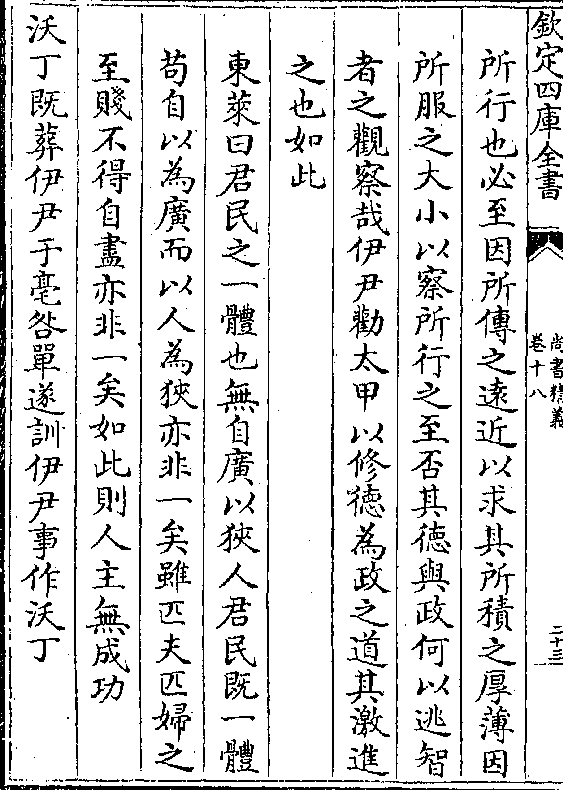 欽定四庫全書
尚書精義
卷十八
二十三
所行也必至因所傳之遠近以求其所積之厚薄因
所服之大小以察所行之至否其德與政何以逃智
者之觀察哉伊尹勸太甲以修德為政之道其激進
之也如此
東萊曰君民之一體也無自廣以狹人君民既一體
苟自以為廣而以人為狹亦非一矣雖匹夫匹婦之
至賤不得自盡亦非一矣如此則人主無成功
沃丁既葬伊尹于亳咎單遂訓伊尹事作沃丁